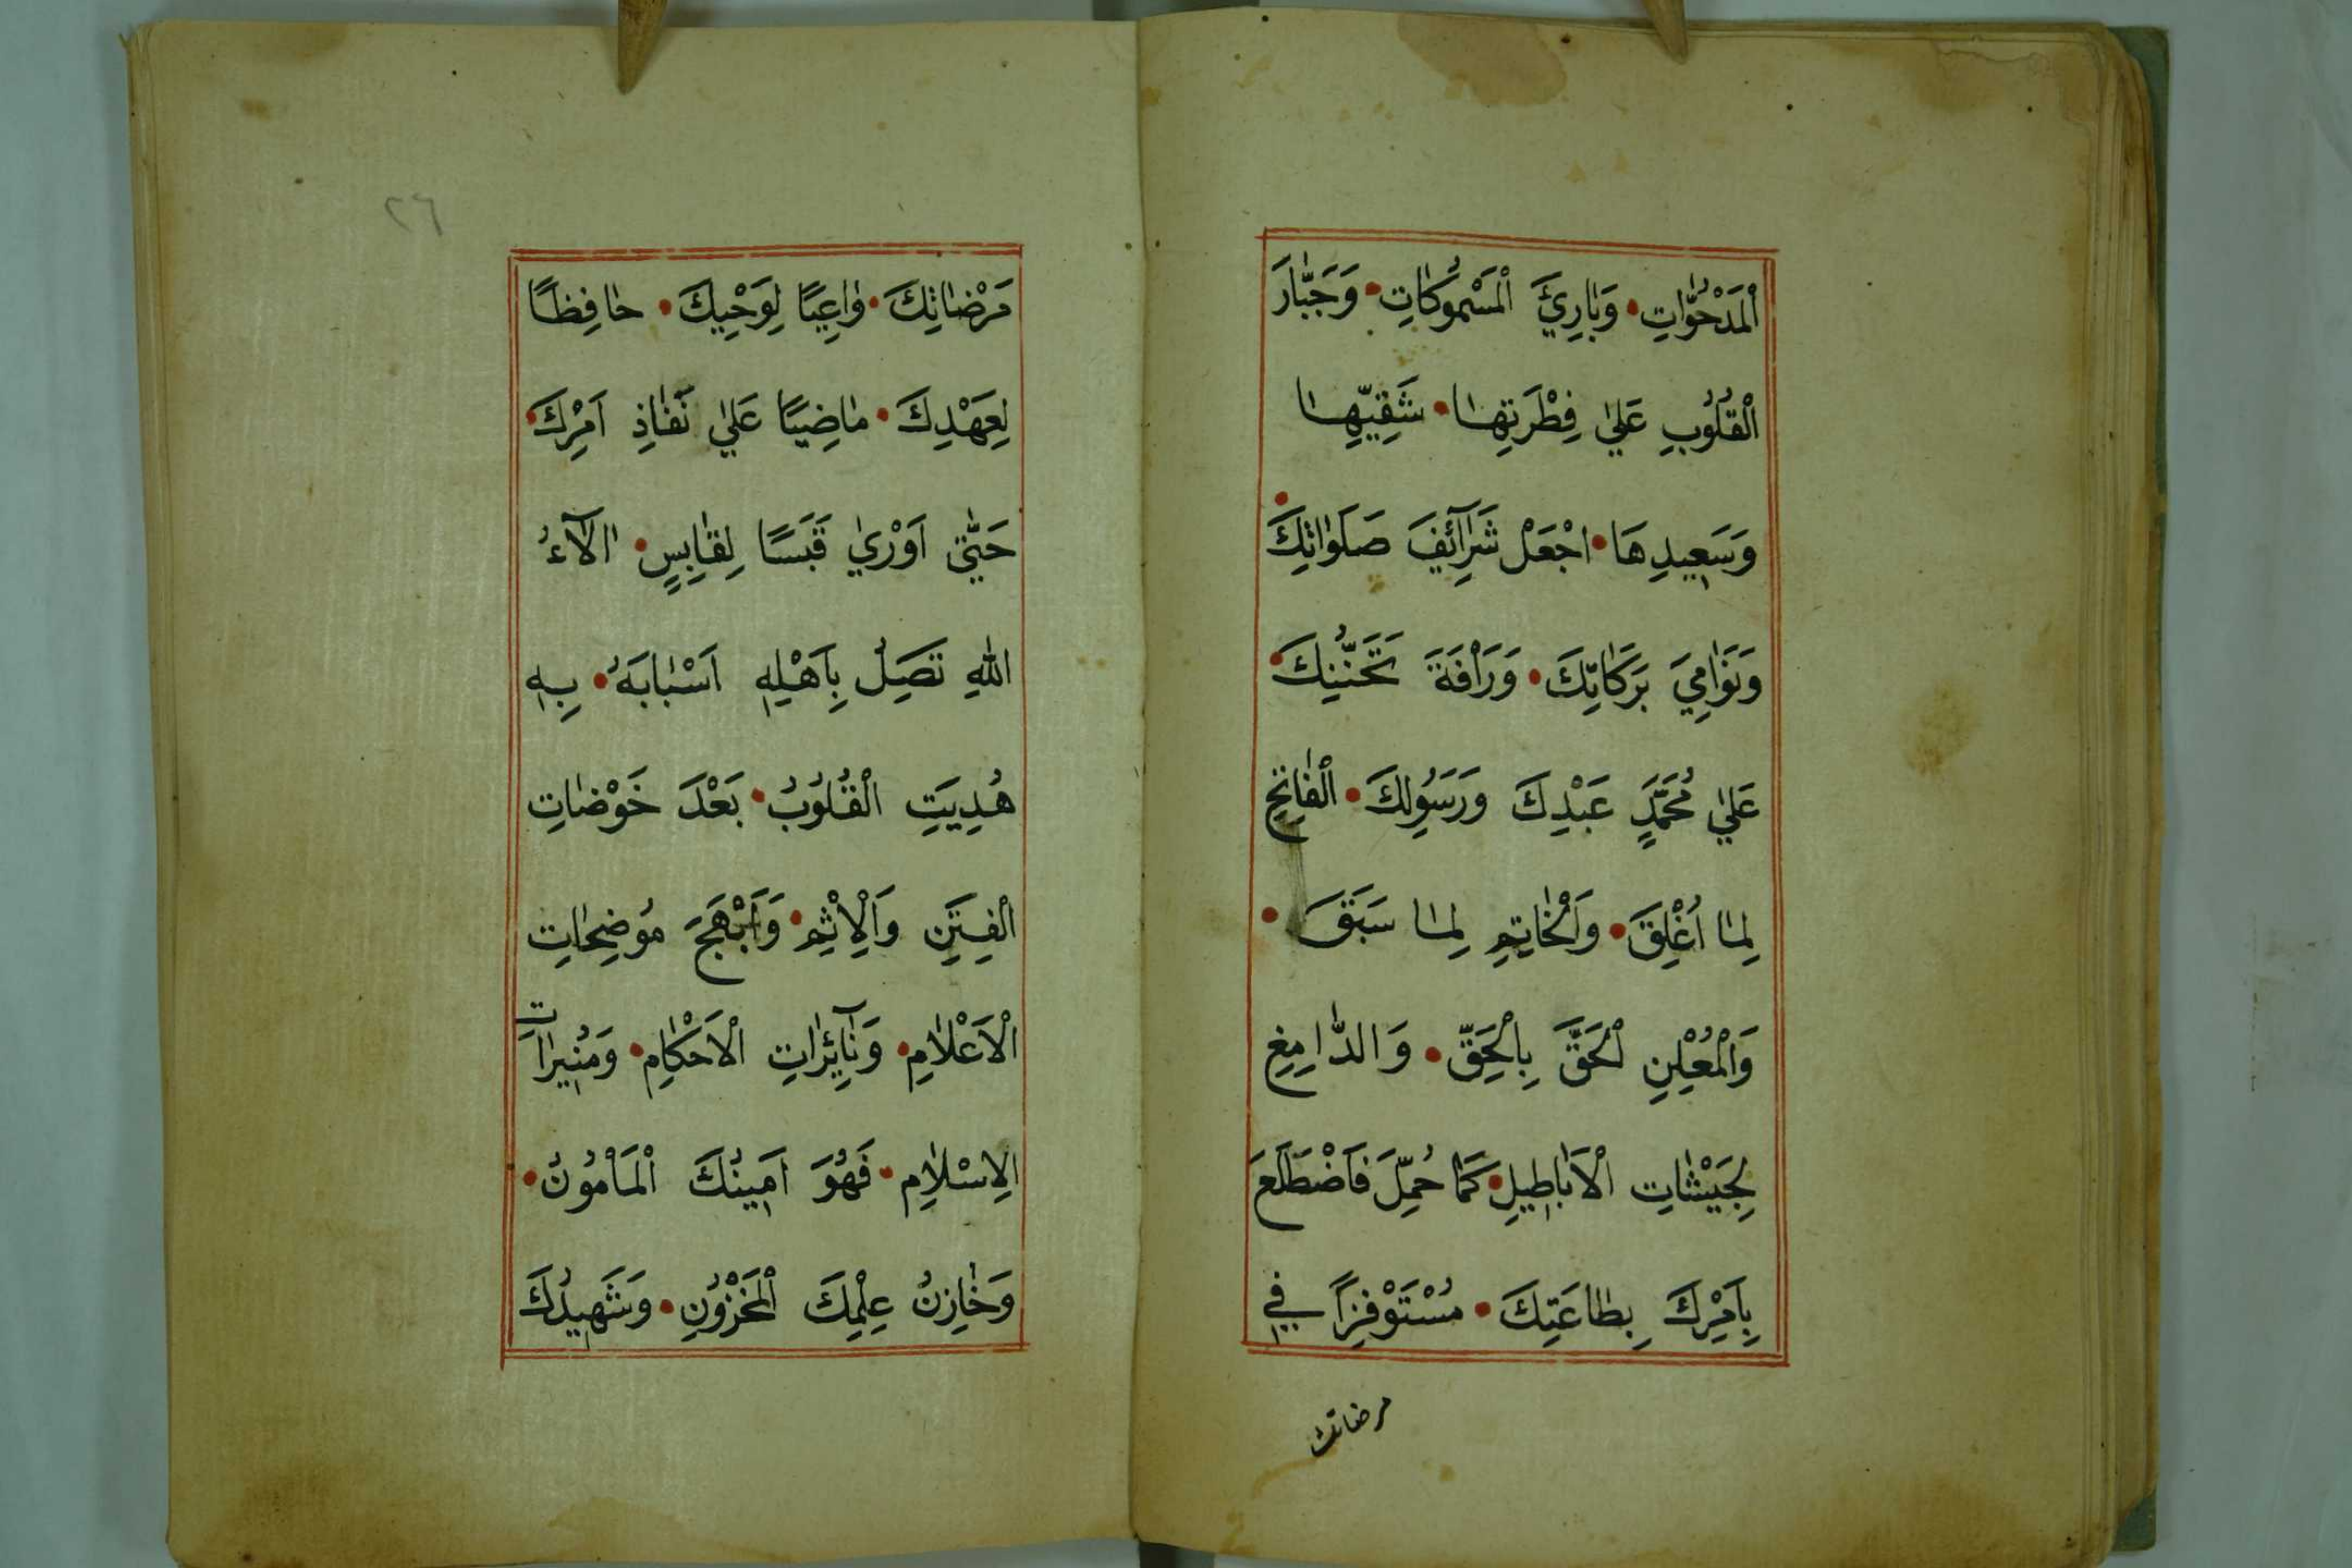 الْمَدْحُوَّاتِ • وَبَارِئَ الْمَسْمُوكَاتِ • وَجَبَّارَ
الْقُلُوبِ عَلَي فِطْرَتِهَا • شَقِيِّهَا
وَسَعِيدِهَا • اجْعَلْ شَرَآئِفَ صَلَوَاتِكَ •
وَنَوَامِيَ بَرَكَاتِكَ • وَرَاْفَةَ تَحَنُّنِكَ •
عَلَي مُحَمَّدٍ عَبْدِكَ وَرَسُولِكَ • الْفَاتِحِ
لِمَا اُغْلِقَ • وَالْخَاتِمِ لِمَا سَبَقَ •
وَالْمُعْلِنِ الْحَقَّ بِالْحَقِّ • وَالدَّامِغِ
لِجَيْشَاتِ الْاَبَاطِيلِ • كَمَا حُمِّلَ فَاضْطَلَعَ
بِاَمْرِكَ بِطَاعَتِكَ • مُسْتَوْفِزًا فِي
مرضاتك
٢٦
مَرْضَاتِكَ • وَاعِيًا لِوَحْيِكَ • حَافِظًا
لِعَهْدِكَ • مَاضِيًا عَلَي نَفَاذِ اَمْرِكَ •
حَتَّي اَوْرَي قَبَسًا لِقَابِسٍ • اٰلَآءُ
اللهِ تَصِلُ بِاَهْلِهِ اَسْبَابَهُ • بِهِ
هُدِيَتِ الْقُلُوبُ • بَعْدَ خَوْضَاتِ
الْفِتَنِ وَالْاِثْمِ • وَاَبْهَجَ مُوضِحَاتِ
الْاَعْلَامِ • وَنَآئِرَاتِ الْاَحْكَامِ • وَمُنِيرَاتِ
الِاسْلَامِ • فَهُوَ اَمِينُكَ الْمَاْمُونُ •
وَخَازِنُ عِلْمِكَ الْمَخْزُونِ • وَشَهِيدُكَ